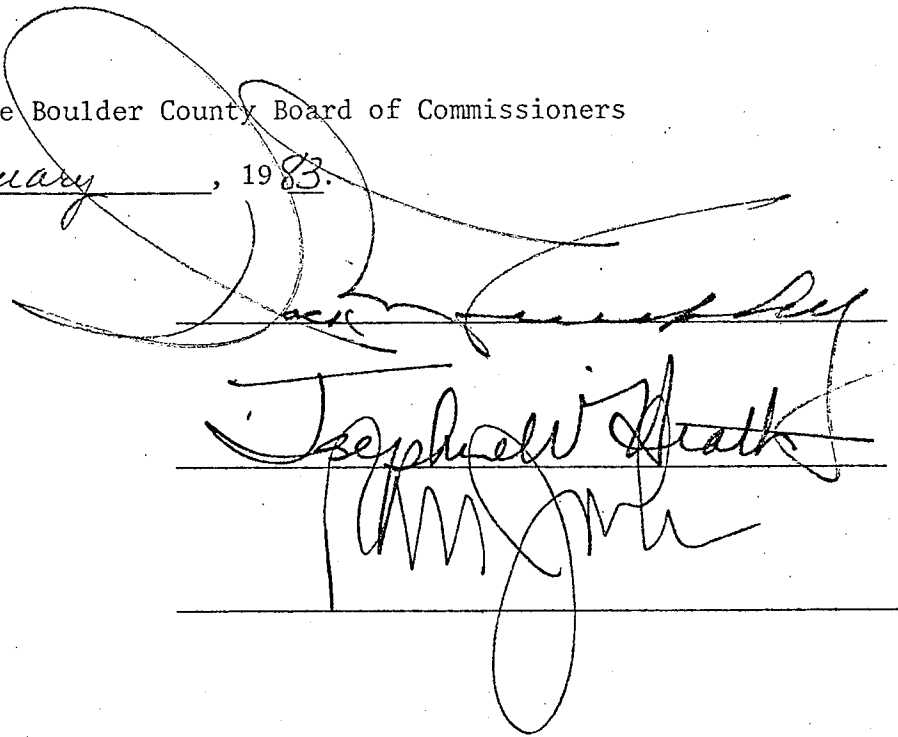 e Boulder County Board of Commissioners
uary, 1983.
Jack
Josephine W Heath